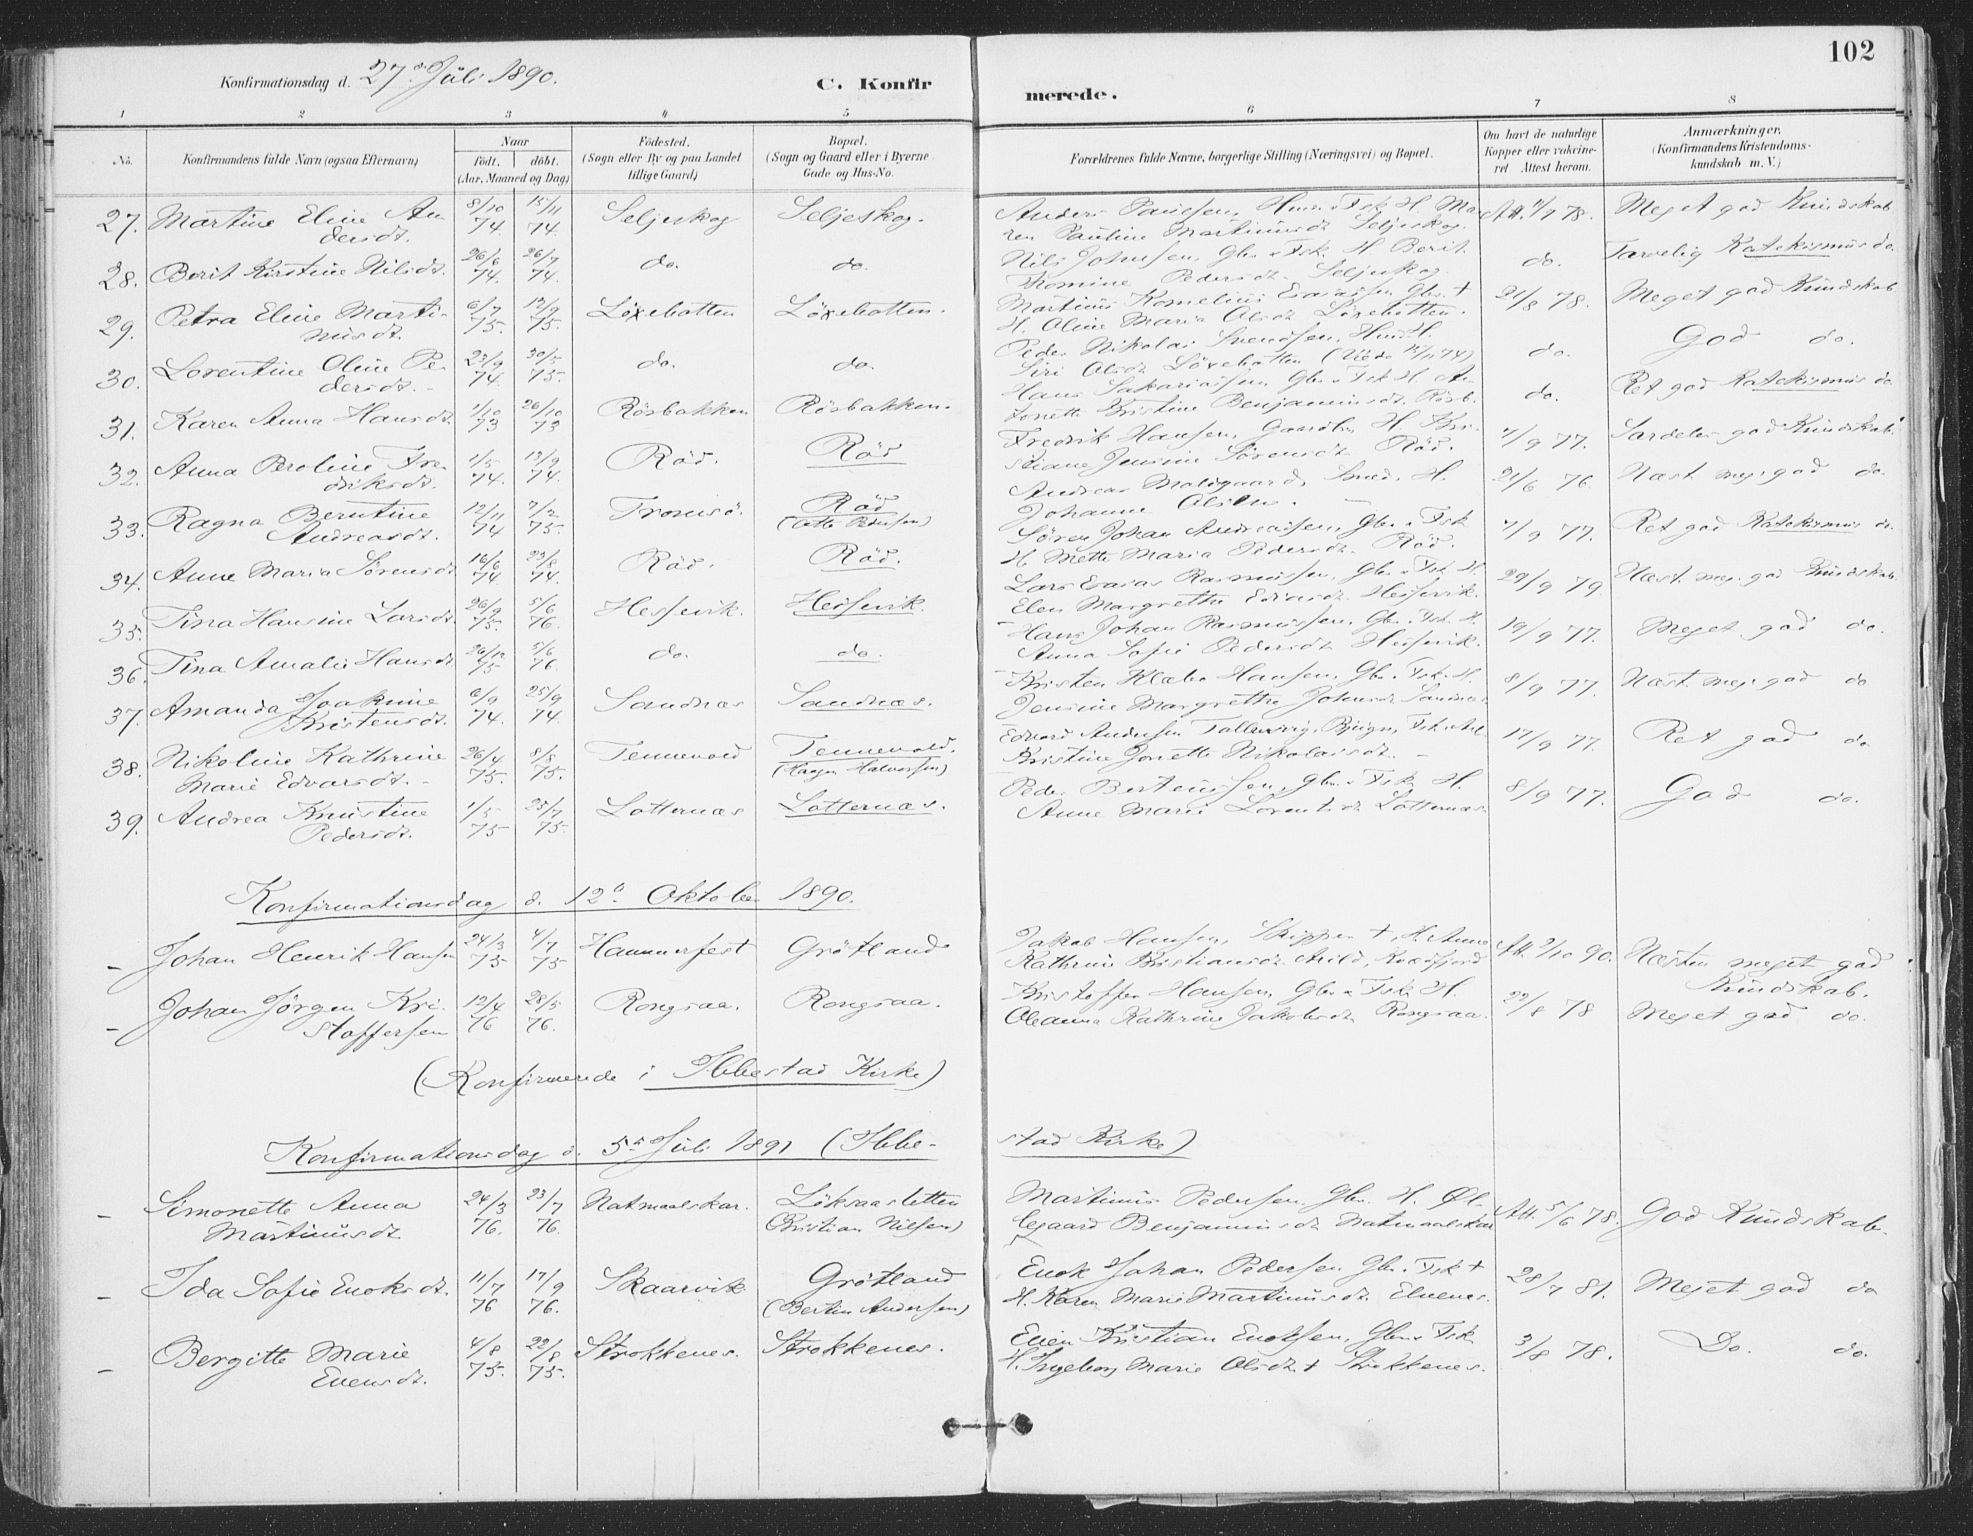 102
Konfirmationsdag d. 27de Juli 1890.
C. Konfirmerede.
1 2 3 4 5 6 7 8
No.
Konfirmandens fulde Navn (ogsaa Efternavn)
Naar
født. døbt.
(Aar, Maaned og Dag)
Fødested.
(Sogn eller By og paa Landet
tillige Gaard)
Bopæl.
(Sogn og Gaard eller i Byerne
Gade og Hus-No.
Forældrenes fulde Navne, borgerlige Stilling (Næringsvei) og Bopæl.
Om havt de naturlige
Kopper eller vakcine-
ret Attest herom.
Anmærkninger.
(Konfirmandens Kristendoms-
kundskab m. V.)
27. Martine Eline An- 8/10 15/11 Seljeskog Seljeskog. Anders Paulsen, Husm. Fsk. H. Ma- Att. 78. Meget god Kundskab
dersdt. 74. 74. ren Pauline Martinusdt. Seljeskog.
28. Berit Kirstine Nilsdt. 26/6 26/7 do. do. Nils Johnsen, Gbr. Fsk. H. Berit do. Tarvelig Katekismus do.
74. 74. Pedersdt. Seljeskog
29. Petra Eline Marti- 6/7 19/9 Löxebotten Löxebotten. Martinus Kornelius Esaiassen Gbr. + 21/8 78. Meget god Kundskab
nusdt. 75. 75. H. Oline Maria Olsdt. Löxebotten.
30. Lorentine Oline Pe- 23/9 30/5 do. do. Peder Nikolai Svendsen, Husm. H. do. God do.
dersdt. 74. 75. Siri Olsdt. Löxebotten
31. Karen Anna Hansdt. 1/10 26/10 Rösbakken Rösbakken. Hans Sakariassen, Gbr. Fsk. H. An- do. Ret god Katekismus do
73 73 tonette Kristine Benjaminsdt. Rösb.
32. Anna Peroline Fre- 1/5 13/9 Röd. Röd Fredrik Hansen, Gaardbr. H. Kri- 7/9 77. Særdeles god Kundskab.
driksdt. 74. 74. stiane Jensine Sörensdt. Röd.
33. Ragna Berntine 12/11 7/2 Tromsö. Röd Andreas Maldgaard, Smed. H. 21/6 76. Næst. meg. god do.
Andreasdt. 74 75. (Otto Pedersen) Johanne Olsdtr.
34. Anne Maria Sörensdt. 16/6 23/8 Röd. Röd. Sören Johan Andreassen, Gbr. Fsk 7/9 77. Ret god Katekismus do.
74 74. H. Mette Maria Pedersdt. Röd.
35. Tina Hansine Larsdt. 26/9 5/6 Hessevik. Hessevik. Lars Esaias Rasmussen, Gbr. Fsk. H. 22/9 79. Næst. meg. god Kundskab
75. 76. Elen Margrethe Hessevik.
36. Tina Amalie Hansdt. 26/12 5/6 do. do. Hans Johan Rasmussen, Gbr. Fsk. H. 19/9 77. Meget god do.
75 76. Anna Sofie Pedersdt. Hessevik.
37. Amanda Joakime 6/9 25/9 Sandnæs Sandnæs. Kristen Klæbo Hansen, Gbr. Fsk. H. 8/9 77. Næst meg. god do
Kristensdt. 74. 74 Jensine Margrethe Johnsdt. Sandnæs
38. Nikoline Kathrine 26/4 8/8 Tennevold Tennevold. Edvard Andersen Tallersvig, Bjugn, Fsk. 17/9 77. Ret god do
Marie Edvardsdt. 75. 75. (Haagen Halvorsen) Kristine Jonette Nikolaisdt.
39. Andrea Knustine 1/5 25/7 Lotternæs Lotternæs. Peder Berteussen, Gbr. Fsk. H. 8/9 77. God do.
Pedersdt. 75 75 Anne Marie Lorentsdt. Lotternæs.
Konfirmationsdag d. 12te Oktober 1890.
- Johan Henrik Hansen 24/3 4/7 Hammerfest Grötland Jakob Hansen, Skipper +, H. Anne Att. 9/10 90. Næsten meget god
75 75 Kathrine Kristiansdt. Kvæfjord Kundskab.
- Johan Jörgen Kri- 12/4 28/5 Rongsaa. Rongsaa. Kristoffer Hansen, Gbr. Fsk. H. 22/8 78 Meget god do.
stoffersen 76 76. Oleanna Kathrine Jakobsdt. Rongsaa.
(Konfirmerede i Ibbestad Kirke)
Konfirmationsdag d. 5te Juli 1891 (Ibbe-
stad Kirke)
- Simonette Anna 24/3 23/7 Natmaalskar. Löksaasletten Martinus Pedersen, Gbr. H. Øl- Att. 5/6 78. God Kundskab.
Martinusdt. 76. 76. (Kristian Nilsen) legaard Benjaminsdt. Natmaalskar
- Ida Sofie Enoksdt. 11/7 17/9 Skaarvik Grötland Enok Johan Pedersen Gbr. Fsk + 28/7 81. Meget god do
76 76. (Bertin Andersen) H. Karen Marie Martinusdt. Elvenes.
- Bergitte Marie 4/8 22/8 Strokkenes. Strokkenes. Even Kristian Enoksen, Gbr. Fsk. 3/8 78. Do. do.
Evensdt. 75. 75. H. Ingeborg Marie Olsdt + Strokkenes.